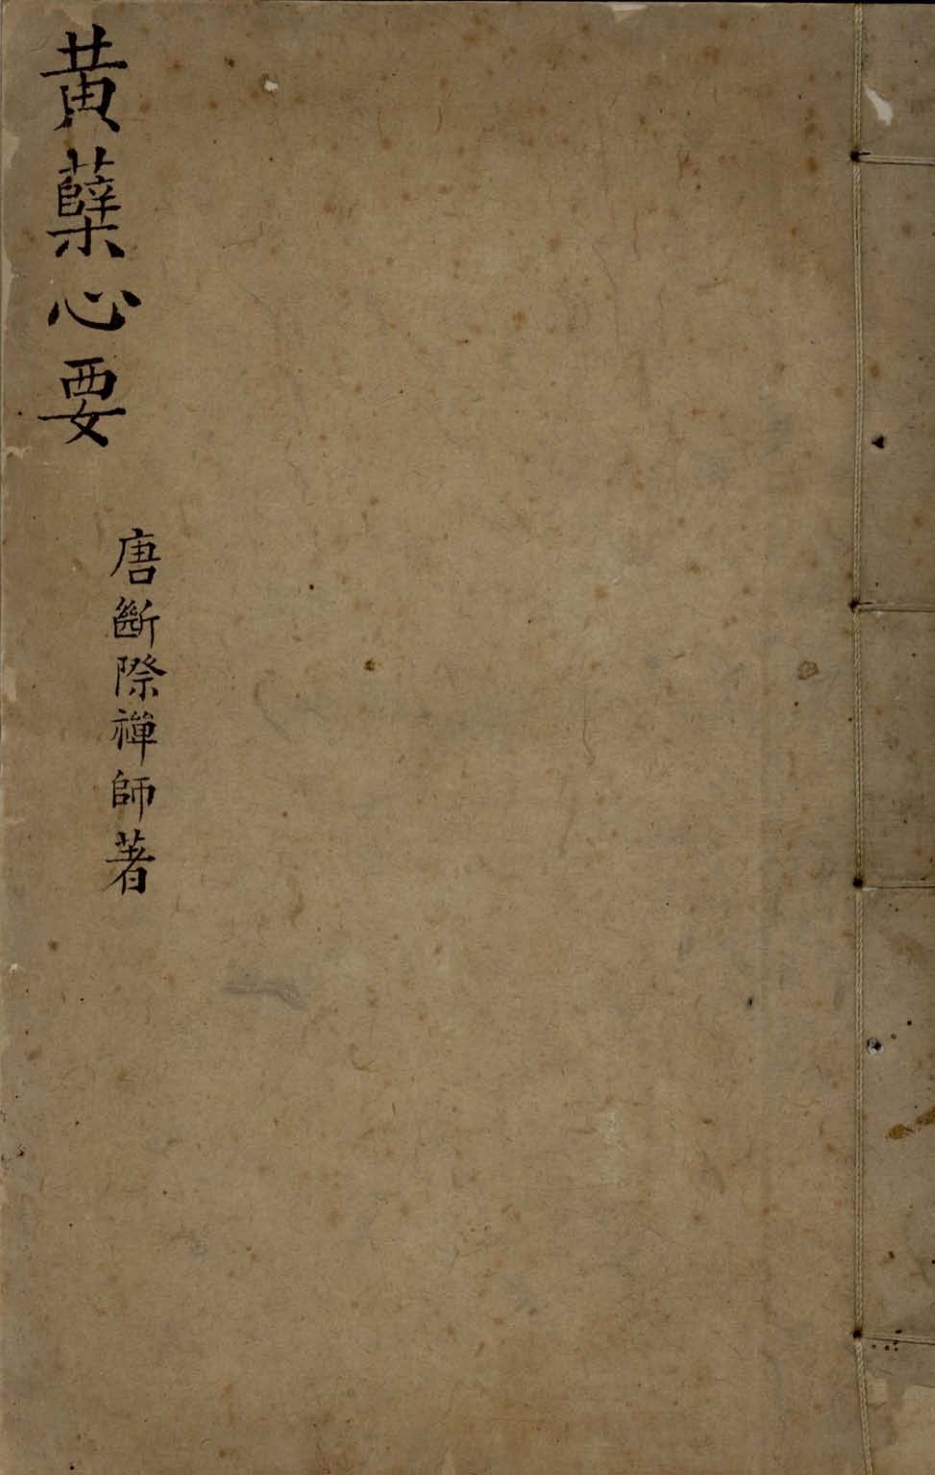 黄蘗心要
唐斷際禪師著